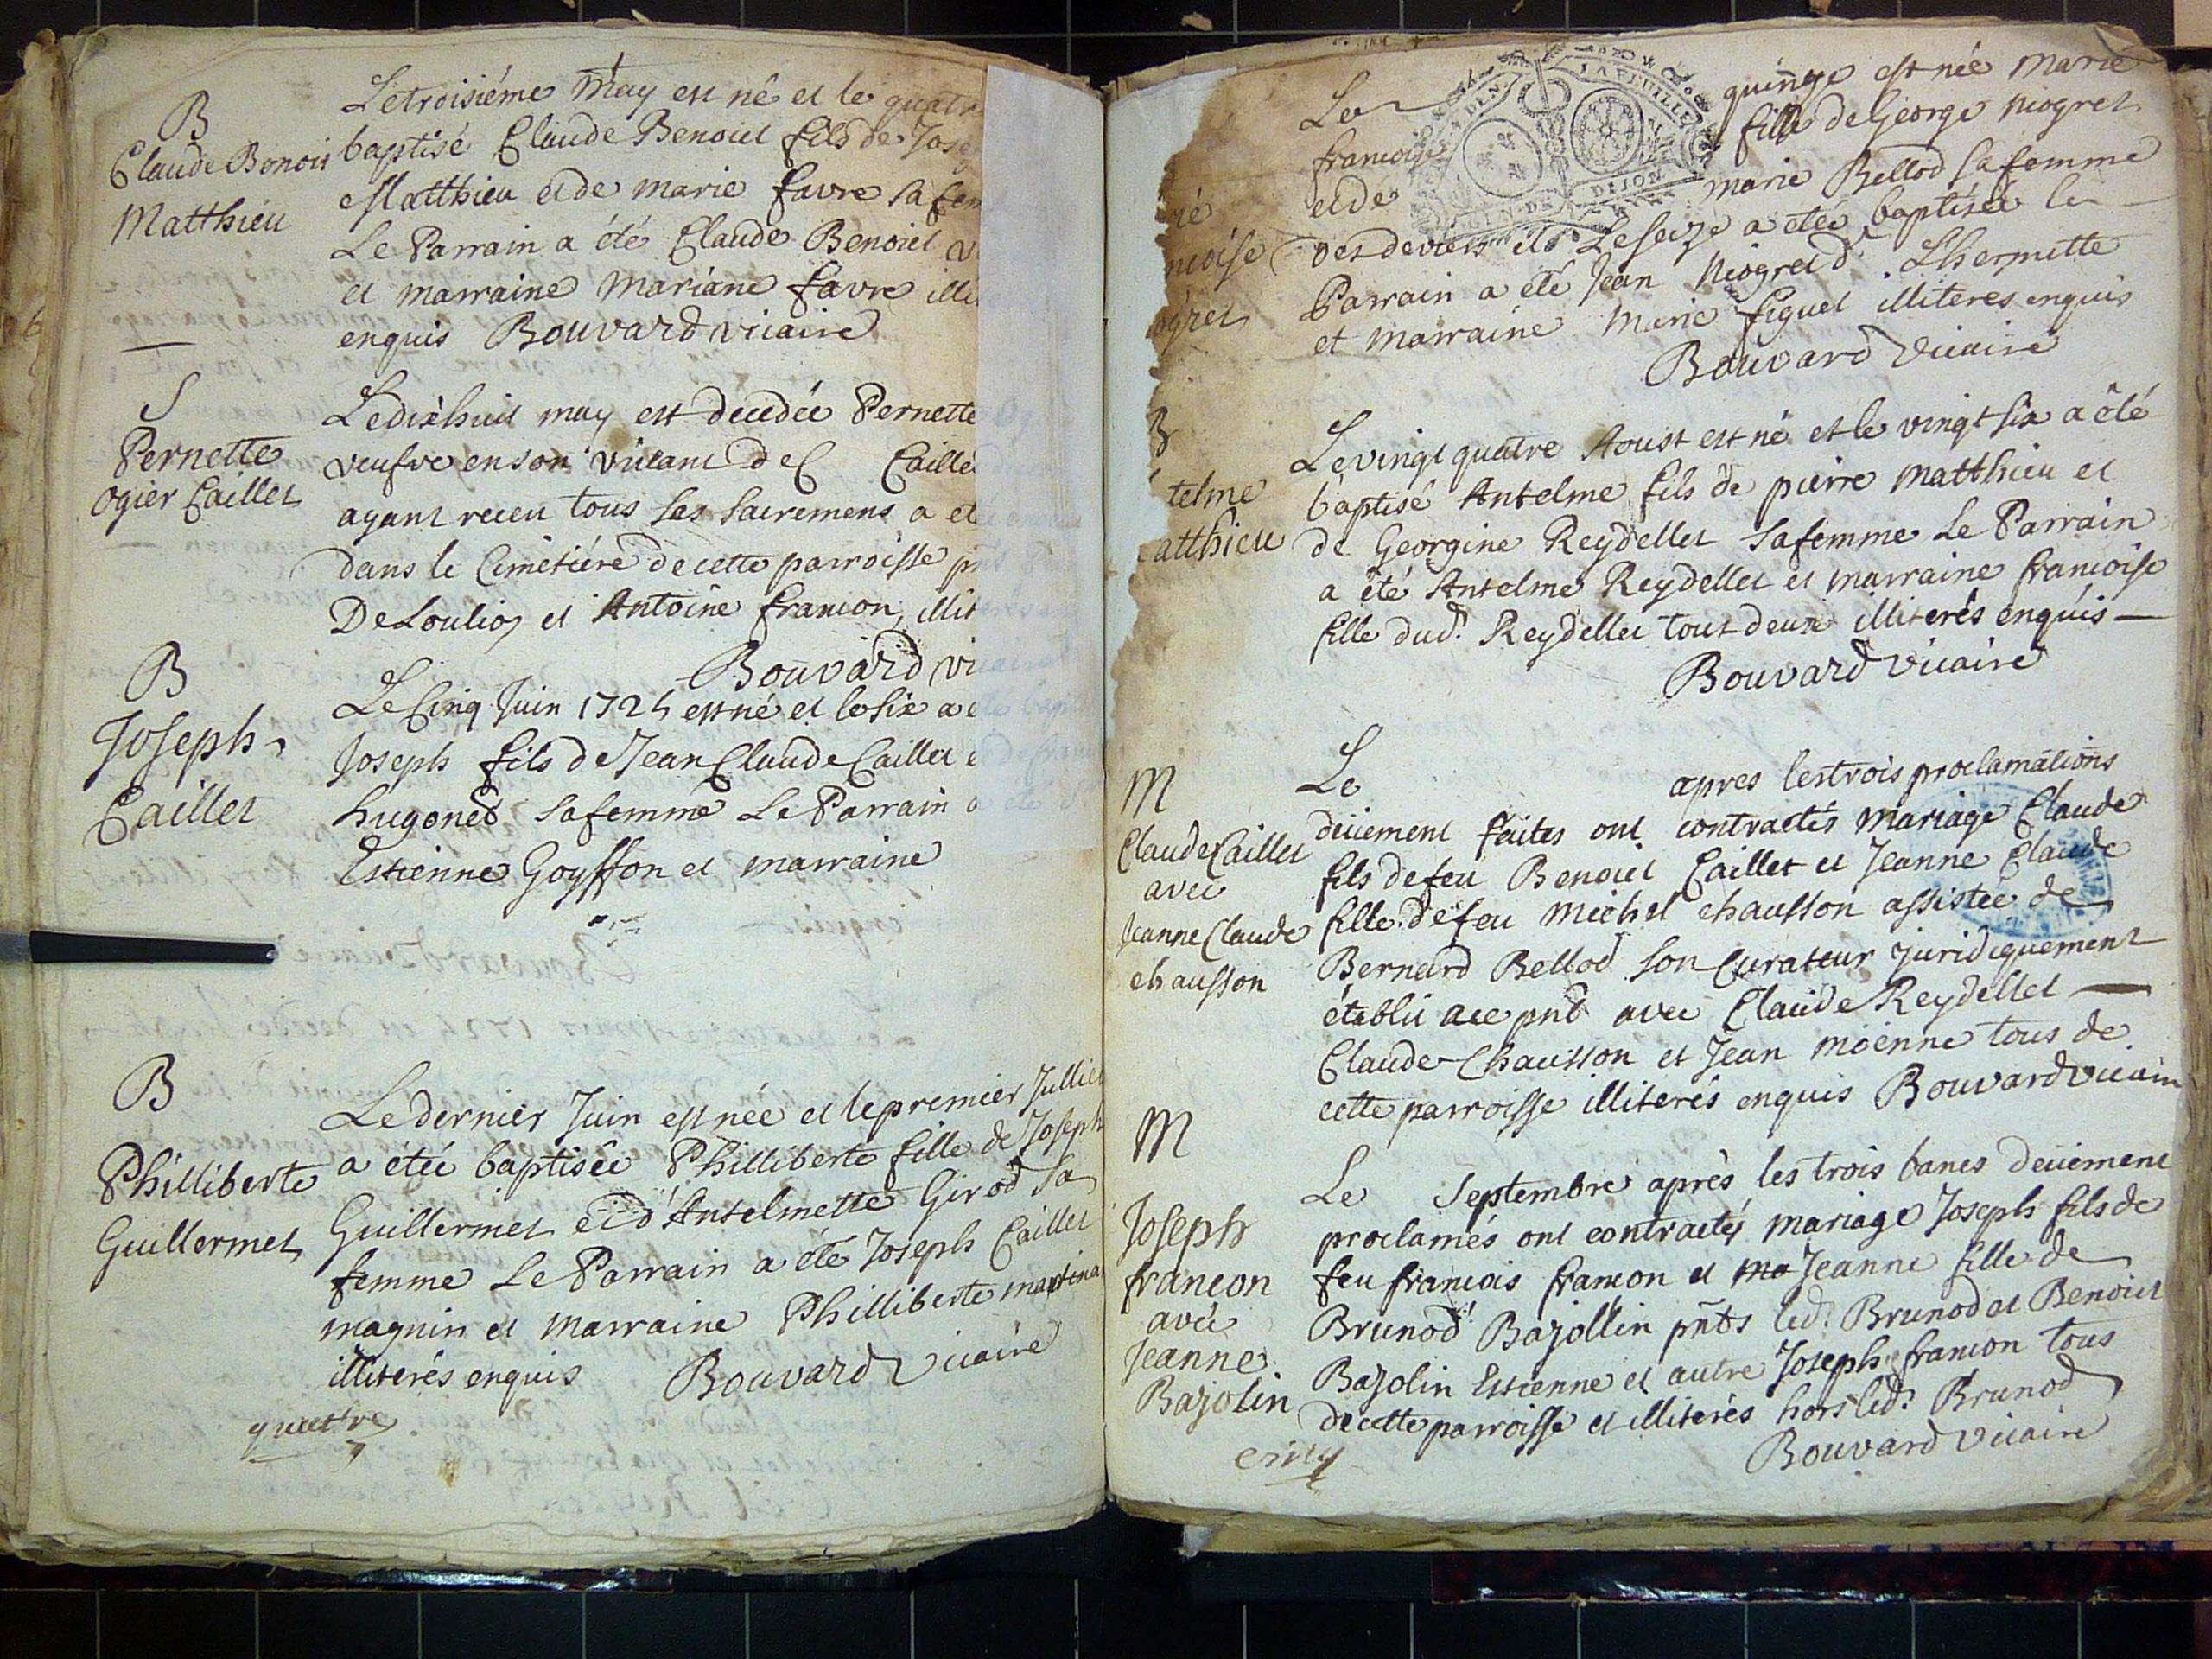 B
Claude Benoit
Matthieu
Le troisiéme May est né et le quat
baptisé Claude Benoict fils de Jose
Matthieu et de marie favre sa fem
Le Parrain a été Claude Benoict
et marraine Mariane favre illi
enquis Bouvard vicaire
S
Pernette
Ogier Caillet
Le dixhuit may est decedée Pernette
veufve en son vivant de C Caille
ayant receu tous ses sacremens a eté
dans le Cimetiére de cette parroisse pnts
De Loulio et Antoine francon, illiterés
Bouvard vicaire
B
Joseph
Caillet
Le Cinq Juin 1724 est né et le six a e
Joseph fils de Jean Claude Caillet e
hugoned sa femme Le Parrain a été
Estienne Goyffon et marraine
B
Philliberte
Guillermet
Le dernier Juin est née et le premier Jullie
a étée baptisée Philliberte fille de Joseph
Guillermet et d'Antelmette Girod sa
femme Le Parrain a été Joseph Caillet
magnin et marraine Philliberte martina
illiterés enquis Bouvard vicaire
quattre
noise
ogret
LA FEUILLE
DIJON
Le quinze est née Marie
francoise fille de George Niogret
et de marie Bellod sa femme
Le seize a étée baptisée le
Parrain a été Jean Niogret d. Lhermitte
et marraine Marie figuet illiteres enquis
Bouvard Vicaire
B
telme
atthieu
Le vingt quatre Aoust est né et le vingt six a été
baptisé Antelme fils de pierre Matthieu et
de Georgine Reydellet sa femme Le Parrain
a été Antelme Reydellet et marraine francoise
fille dud. Reydellet tout deux illiterés enquis
Bouvard vicaire
M
Claude Caillet
avec
Jeanne Claude
chausson
Le apres les trois proclamations
deüement faites ont contractés mariage Claude
fils de feu Benoict Caillet et Jeanne Claude
fille de feu michel chausson assistée de
Bernard Bellod son Curateur juridiquement
établi a ce pnt avec Claude Reydellet
Claude Chausson et Jean moënne tous de
cette parroisse illiterés enquis Bouvard vicaire
M
Joseph
francon
avec
Jeanne
Bajolin
Le Septembre après les trois bancs deüement
proclamés ont contractés mariage Joseph fils de
feu francois francon et ma Jeanne fille de
Brunod Bajollin pnts led. Brunod et Benoict
Bajolin Estienne et autre Joseph francon tous
de cette parroisse et illiterés hors led. Brunod
Bouvard vicaire
cinq